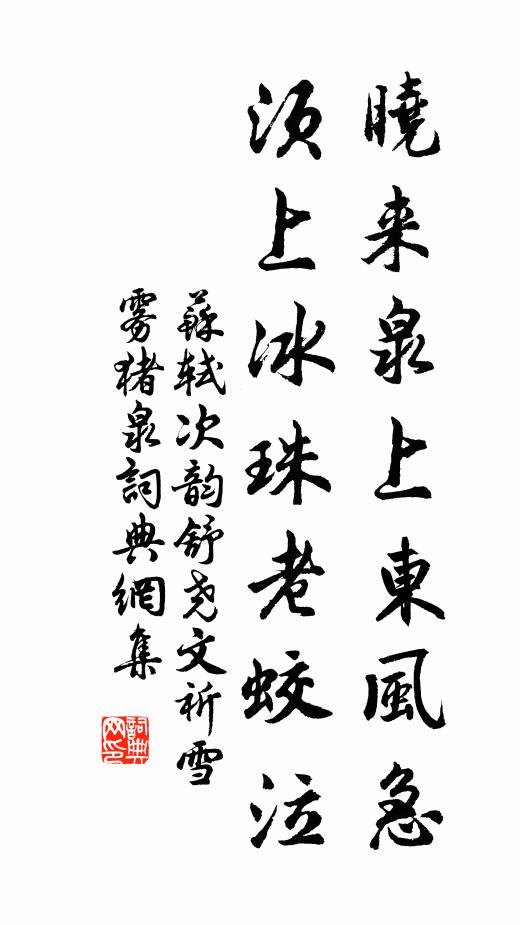 曉来泉上東風急
須上冰珠老蛟泣
蘇軾次韵舒堯文祈雪
雾猪泉詞典網集
詞典
网印